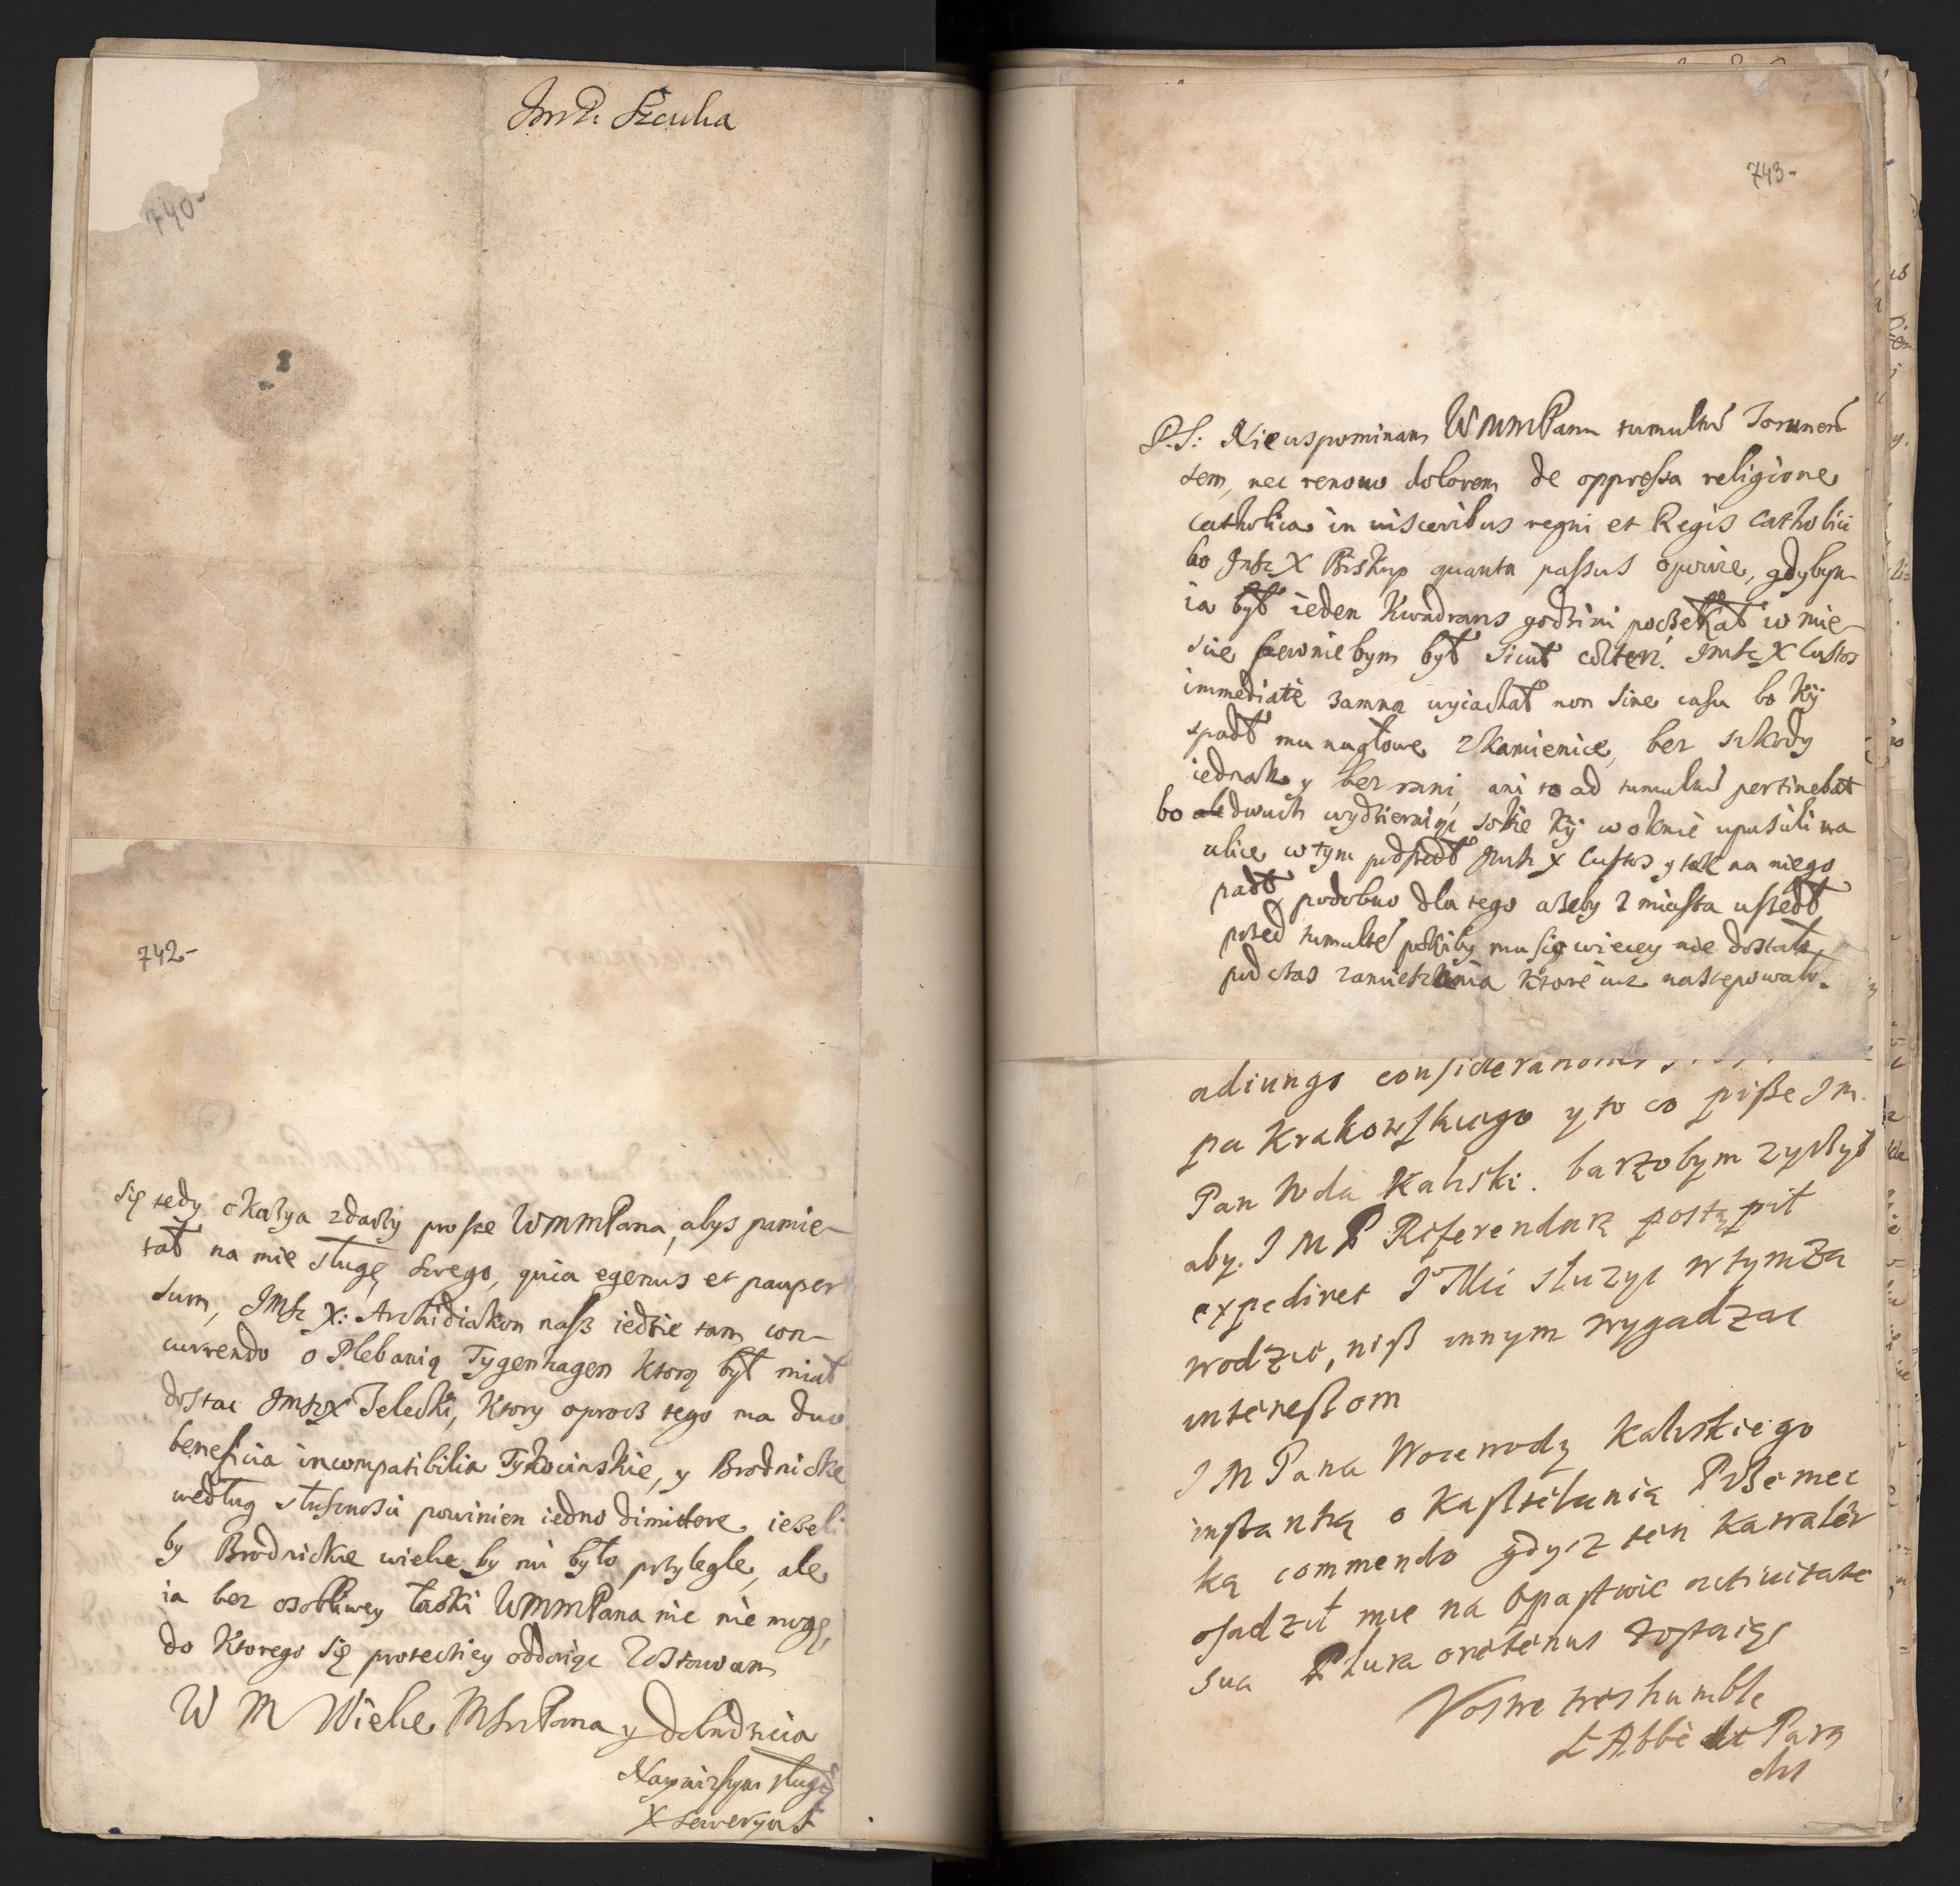 JmP. Szczuka
740-
742-
Się tedy okazya zdarzy prosze WMMPana, abys pamie-
tał na mie sługę swego, quia egenus et pauper
sum, JMść X: Archidiakon nasz iedzie tam con-
currendo o Plebanią Tygenhagen ktorą był miał
dostac Jmść X Zelecki, ktory oprocz tego ma duo
beneficia incompatibilia Tykocinskie, y Brodnickie
według słusznosci powinien iedno dimittere, iezeli
by Brodnickie wielce by mi było przylegle, ale
ia bez osobliwey łaski WMMPana nic nie mogę,
do ktorego się protectiey oddaiąc zostawam
W M Wielce MśćPana y dobrodzieia
Nayniższym sługą
X Seweryn S
743-
P.S: Nie wspominam WMMPanu tumultu Torunen
sem, nec renovo dolorem de oppressa religione
catholica in visceribus regni et Regis Catholici
bo Jmść X Biskup quanta passus opisze, gdybym
ia był ieden kwadrans godzini poczekał w mie-
scie pewnie bym był sicut caeteri. Jmść X Custos
immediate zamną wyiachał non sine casu bo kÿ
spadł mu nagłowe z kamienice, bez szkody
iednak y bez rani, ani to ad tumultu pertinebat
bo dwuch wydzieraiąc sobie kÿ w oknie upuscili na
ulice w tym podszedł Jmść X Custos y tak na niego
padł podobno dla tego azeby z miasta uszedł
przed tumultem zeby mu się wiecey nie dostało
pod czas zamieszania ktore iuz nastepowało.
adiungo
pa Krakowskiego y to co pisze Jm.
Pan Wda Kaliski. barzobym zyczył
aby. J M P Referendarz postąpił
expediret J Mci służyc w tym za
wodzie, nisz innym wygadzac
interessom
J M Pana Woiewody Kaliskiego
instantią o Kasztelanią Przemec
ką commendo gdysz ten kawaler
osadził mie na Opactwie activitate
sua Plura oretenus zostaiąc
Vostre tres humble
L Abbè de Para
dis